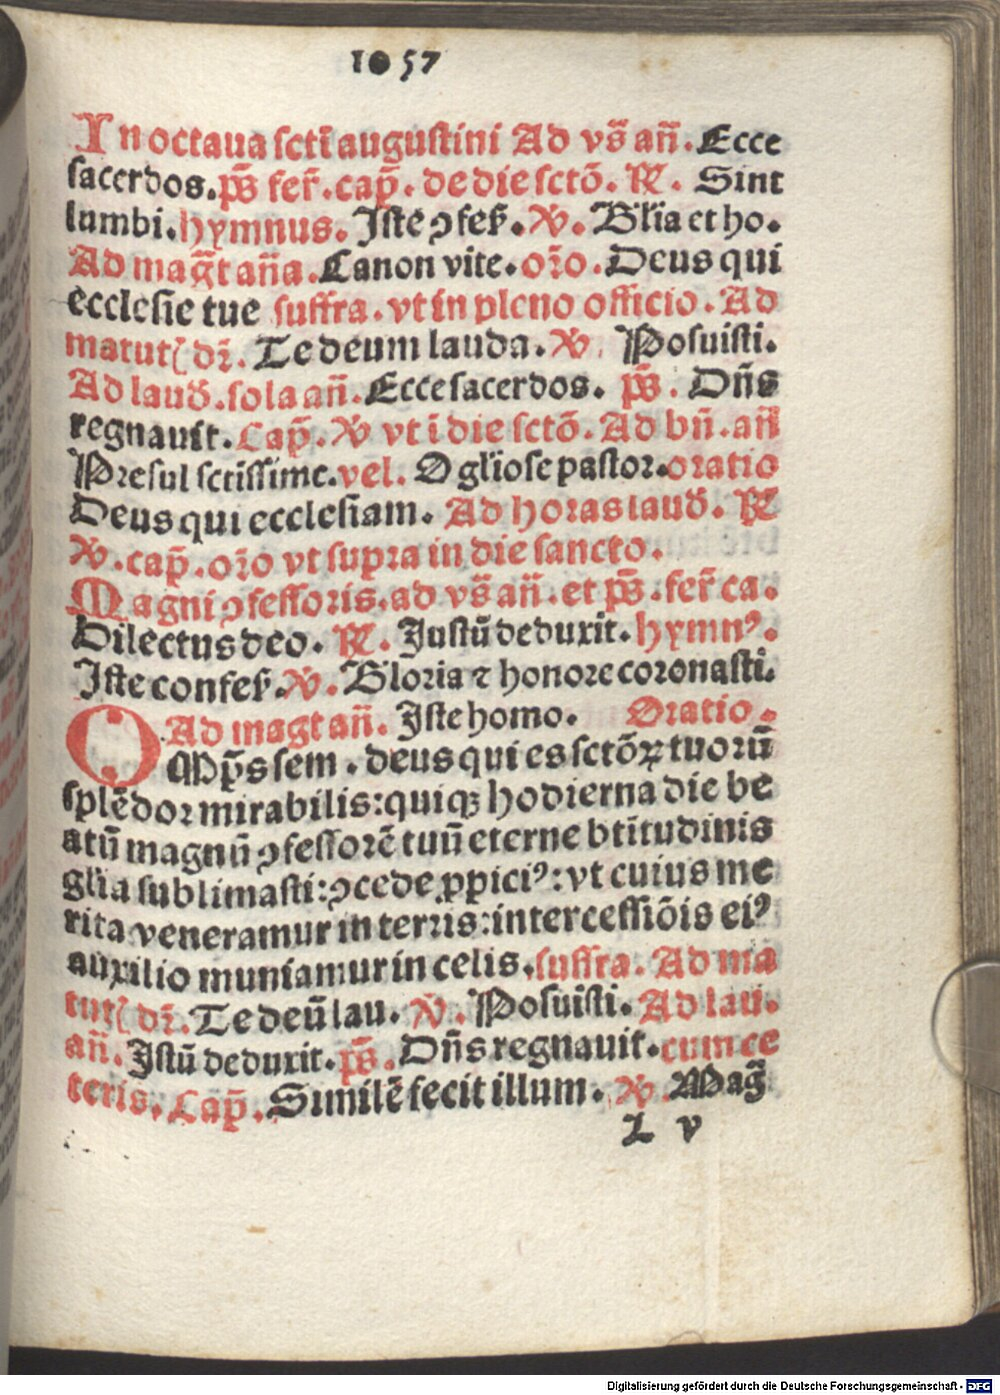 1057
In octaua sctī augustini Ad vs̄ añ. Ecce
sacerdos. ps̄ fer̄. cap̄. de die sctō. R. Sint
lumbi. hymnus. Iste ꝯfes̄. V. Glīa et ho.
Ad maḡt aña. Canon vite. or̄o. Deus qui
ecclesie tue suffra. vt in pleno officio. Ad
matutꝭ dr̄. Te deum lauda. V. Posuisti.
Ad laud̄. sola añ. Ecce sacerdos. ps̄. Dñs
regnauit. Cap̄. V vt ī die sctō. Ad bñ. añ
Presul sctissime. vel. O glīose pastor. oratio
Deus qui ecclesiam. Ad horas laud̄. R
V. cap̄. or̄o vt supra in die sancto.
Magni ꝯfessoris. ad vs̄ añ. et ps̄. fer̄ ca.
Dilectus deo. R. Justū deduxit. hymnꝰ.
Iste confes̄. V. Gloria ⁊ honore coronasti.
Ad magt añ. Iste homo. Oratio.
OMp̄s sem. deus qui es sctōꝝ tuorū
splēdor mirabilis: quiqꝫ hodierna die be
atū magnū ꝯfessorē tuū eterne btītudinis
glīa sublimasti: ꝯcede ꝓpiciꝰ: vt cuius me
rita veneramur in terris: intercessiōis eiꝰ
auxilio muniamur in celis. suffra. Ad ma
tutꝭ dr̄. Te deū lau. V. Posuisti. Ad lau.
añ. Justū deduxit. ps̄. Dñs regnauit. cum ce
teris. Cap̄. Similē fecit illum. V. Maḡ
L v
Digitalisierung gefördert durch die Deutsche Forschungsgemeinschaft - DFG